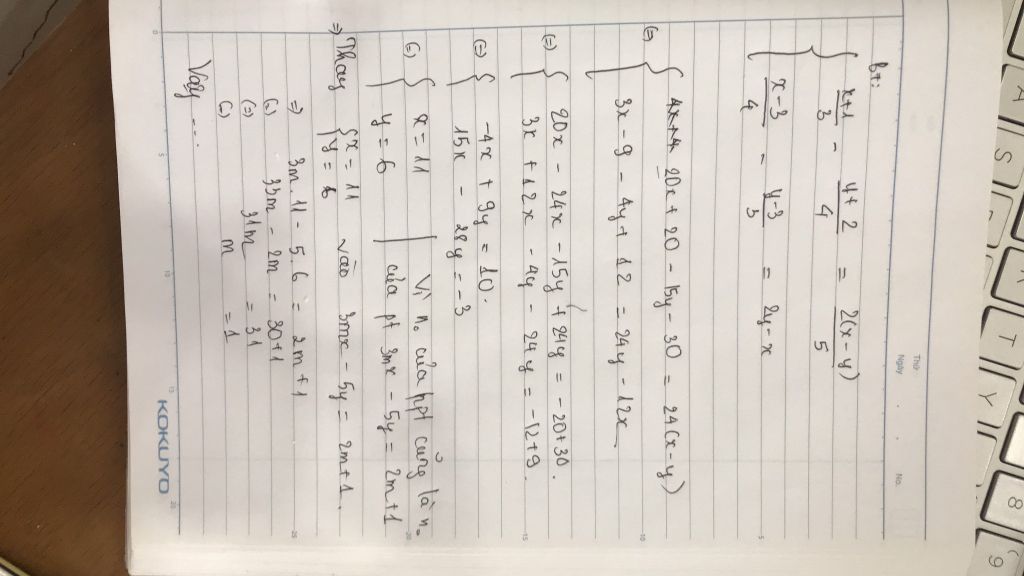 Thứ
Ngày . . No.
Bt:
{ x+1/3 - y+2/4 = 2(x-y)/5
{ x-3/4 - y-3/3 = 2y-x
(=) { 20x + 20 - 15y - 30 = 24(x-y)
{ 3x - 9 - 4y + 12 = 24y - 12x
(=) { 20x - 24x - 15y + 24y = -20+30.
{ 3x + 12x - 4y - 24y = -12+9.
(=) { -4x + 9y = 10.
{ 15x - 28y = -3
(=) { x = 11 | Vì no của hpt cũng là no
{ y = 6 | của pt 3mx - 5y = 2m+1
=) Thay { x = 11
{ y = 6 vào 3mx - 5y = 2m+1.
=) 3m.11 - 5.6 = 2m+1
(=) 33m - 2m = 30+1
(=) 31m = 31
(=) m = 1
Vậy ....
KOKUYO
0 5 10 15 20
5 10 15 20 25
A S R T Y 8 9